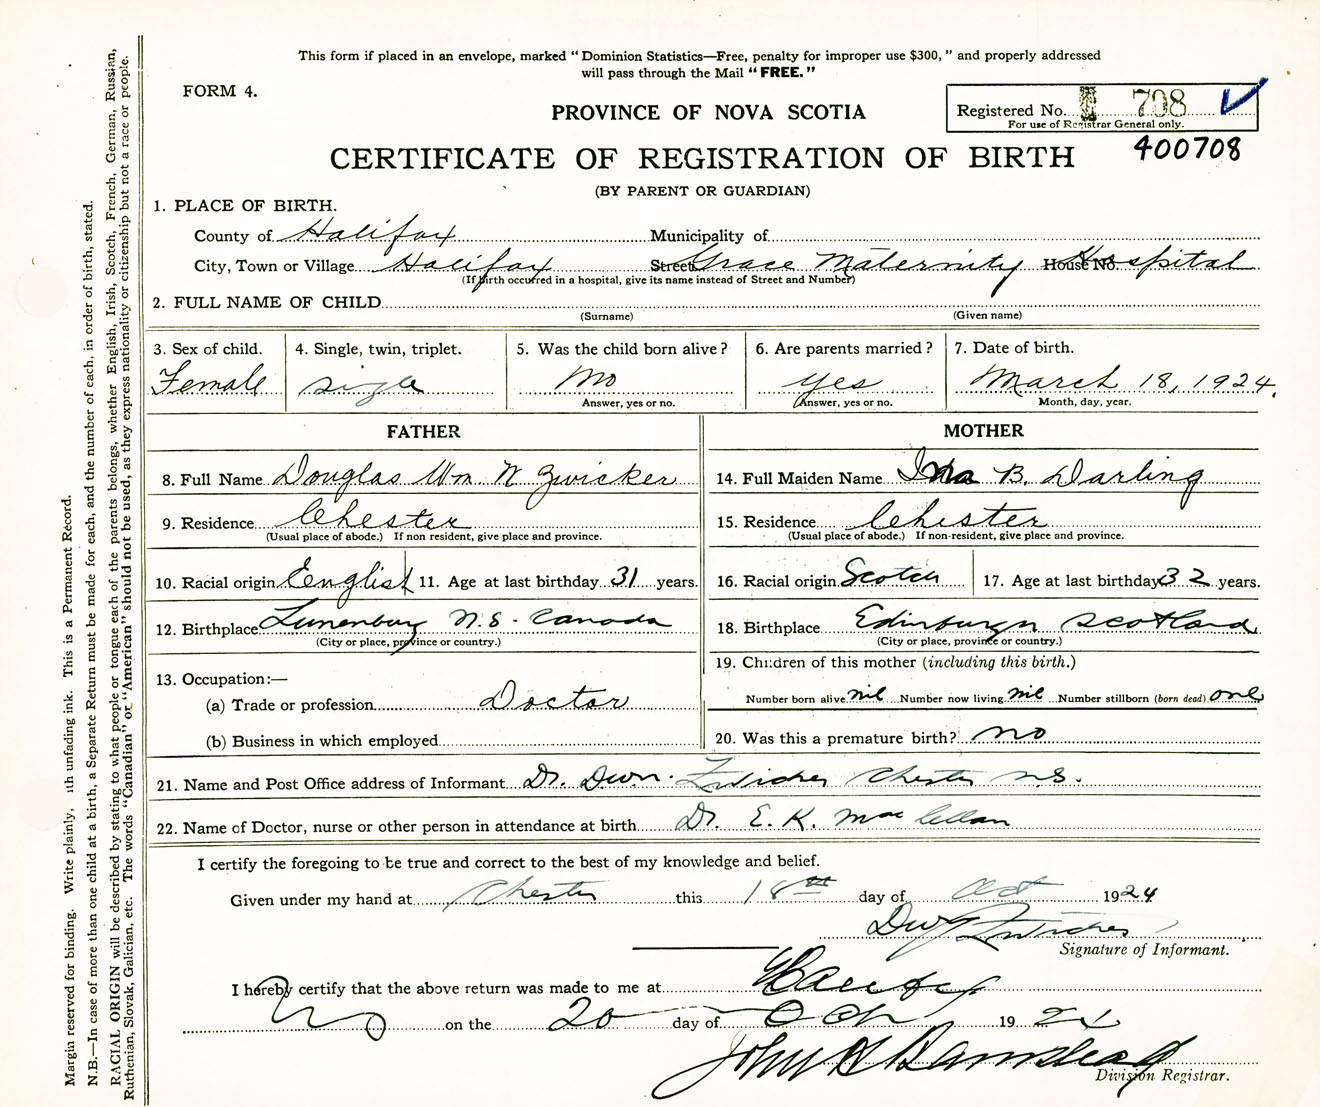 This form if placed in an envelope, marked "Dominion Statistics—Free, penalty for improper use $300," and properly addressed
will pass through the Mail "FREE."
FORM 4.
PROVINCE OF NOVA SCOTIA
Registered No. 708
For use of Registrar General only.
CERTIFICATE OF REGISTRATION OF BIRTH
400708
(BY PARENT OR GUARDIAN)
1. PLACE OF BIRTH.
County of Halifax Municipality of
City, Town or Village Halifax Street Grace Maternity House No. Hospital
(If birth occurred in a hospital, give its name instead of Street and Number)
2. FULL NAME OF CHILD
(Surname) (Given name)
3. Sex of child. 4. Single, twin, triplet. 5. Was the child born alive? 6. Are parents married? 7. Date of birth.
Female single no yes March 18, 1924.
Answer, yes or no. Answer, yes or no. Month, day, year.
FATHER MOTHER
8. Full Name Douglas Wm N Zwicker 14. Full Maiden Name Ina B. Darling
9. Residence Chester 15. Residence Chester
(Usual place of abode.) If non resident, give place and province. (Usual place of abode.) If non-resident, give place and province.
10. Racial origin English 11. Age at last birthday 31 years. 16. Racial origin Scotch 17. Age at last birthday 32 years.
12. Birthplace Lunenburg N.S. Canada 18. Birthplace Edinburgh Scotland
(City or place, province or country.) (City or place, province or country.)
19. Children of this mother (including this birth.)
13. Occupation:—
Number born alive nil Number now living nil Number stillborn (born dead) one
(a) Trade or profession Doctor
(b) Business in which employed 20. Was this a premature birth? no
21. Name and Post Office address of Informant Dr. Dwn. Zwicker Chester N.S.
22. Name of Doctor, nurse or other person in attendance at birth Dr. E. K. MacLellan
I certify the foregoing to be true and correct to the best of my knowledge and belief.
Given under my hand at Chester this 18th day of Oct 1924
Zwicker
Signature of Informant.
I hereby certify that the above return was made to me at Halifax
on the 20 day of Oct 1924
John
Division Registrar.
Margin reserved for binding. Write plainly, with unfading ink. This is a Permanent Record.
N.B.—In case of more than one child at a birth, a Separate Return must be made for each, and the number of each, in order of birth, stated.
RACIAL ORIGIN will be described by stating to what people or tongue each of the parents belongs, whether English, Irish, Scotch, French, German, Russian,
Ruthenian, Slovak, Galician, etc. The words "Canadian" or "American" should not be used, as they express nationality or citizenship but not a race or people.